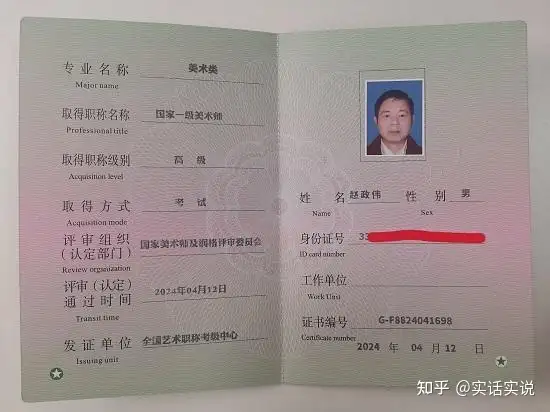 专业名称 美术类
Major name
取得职称名称 国家一级美术师
Professional title
取得职称级别 高 级
Acquisition level
取得方式 考 试
Acquisition mode
评审组织
(认定部门) 国家美术师及润格评审委员会
Review organization
评审(认定)
通过时间 2024年04月12日
Transit time
发证单位 全国艺术职称考级中心
Issuing unit
姓 名 赵政伟 性 别 男
Name Sex
身份证号 33
ID card number
工作单位
Work Unit
证书编号 G-F8824041698
Certificate number
2024 年 04 月 12 日
知乎 @实话实说